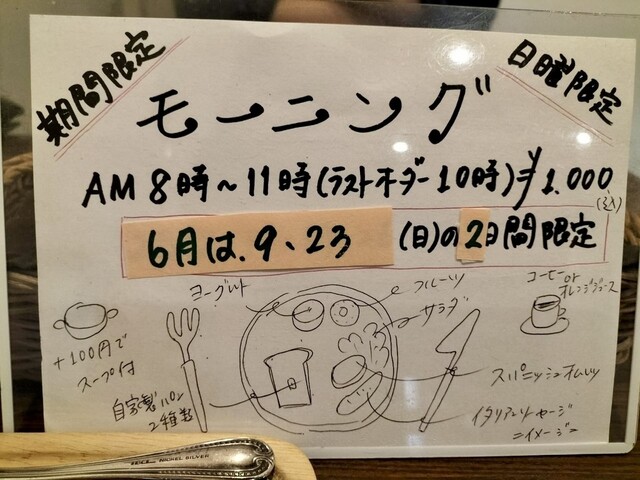 期間限定
日曜限定
モーニング
AM 8時〜11時(ラストオーダー10時)¥1.000
(税込)
6月は、9、23 (日)の2日間限定
ヨーグルト
フルーツ
サラダ
コーヒーor
オレンジジュース
+100円で
スープ付
自家製パン
2種類
スパニッシュオムレツ
イタリアンソーセージ
=イメージ=
NICKEL SILVER